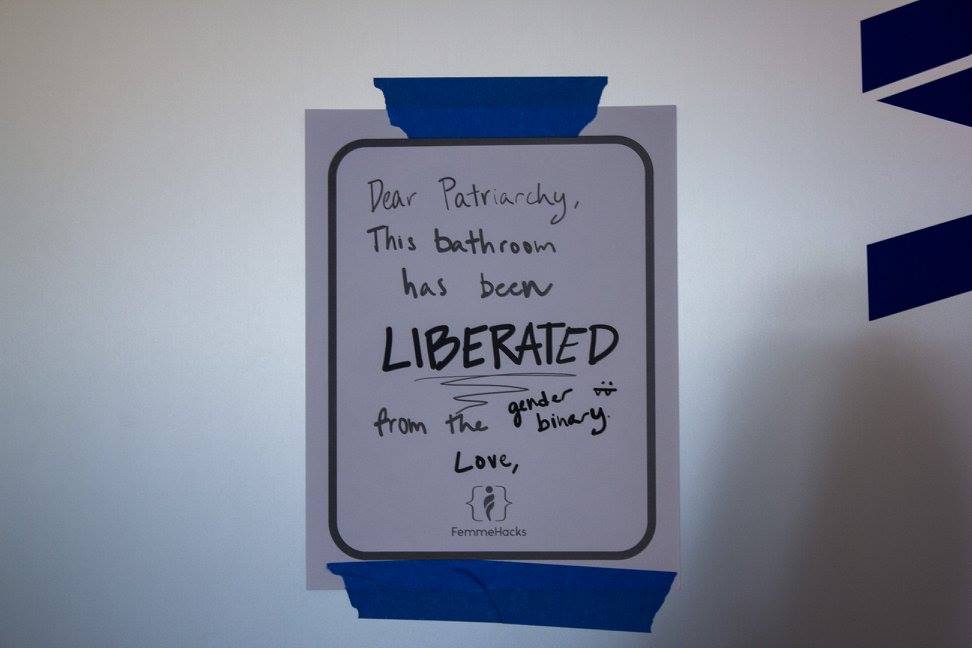 Dear Patriarchy,
This bathroom
has been
LIBERATED
from the gender
binary.
Love,
FemmeHacks